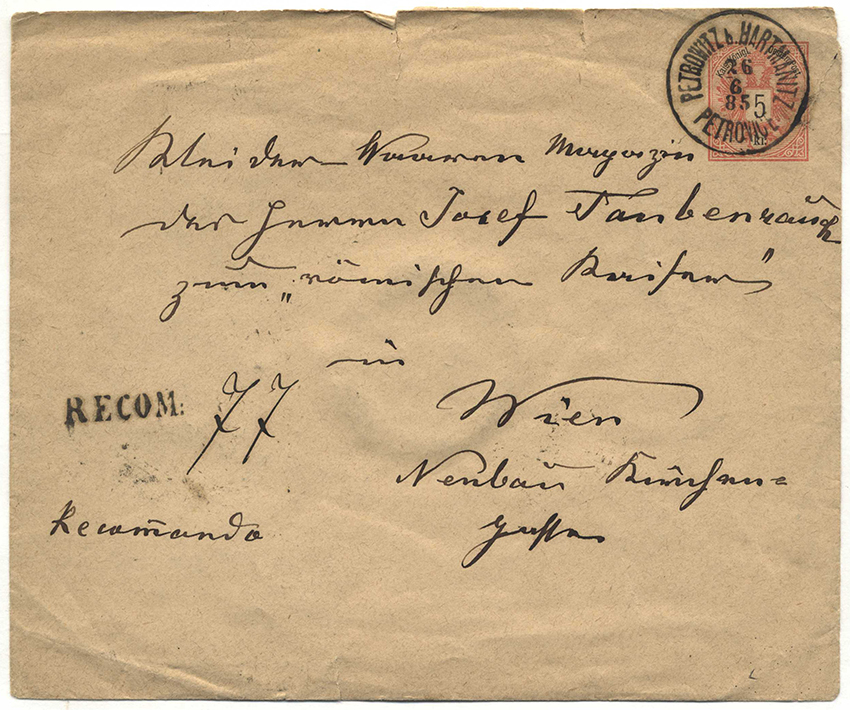 PETROWITZ b. HARTMANITZ
26
6
85
PETROVICE
Kais. Königl.
5
kr.
Kleider Waaren Magazin
des Herrn Josef Taubenrauch
zum „römischen Kaiser"
in
RECOM: 77
Wien
Neubau Kirchen=
gasse
Recom̄ando